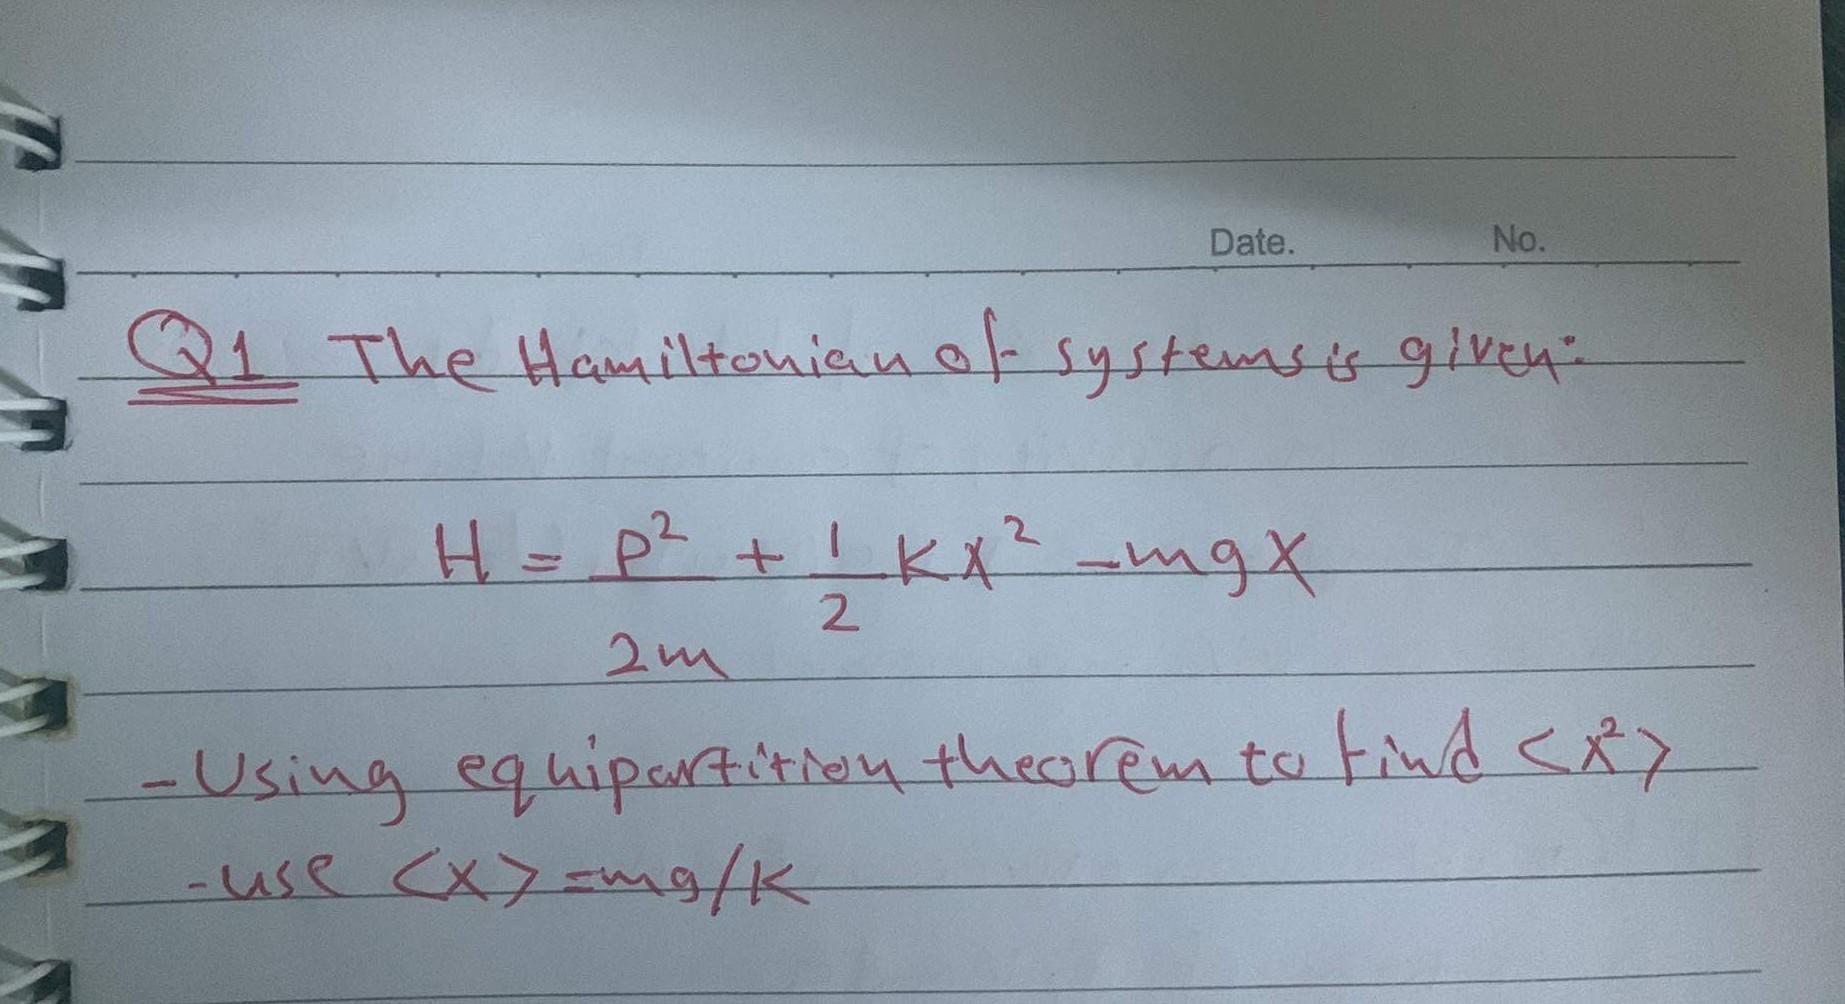 Date. No.
Q1 The Hamiltonian of systems is given:
H = P²/2m + 1/2 KX² - mgX
- Using equipartition theorem to find <X²>
- use <X> = mg/K